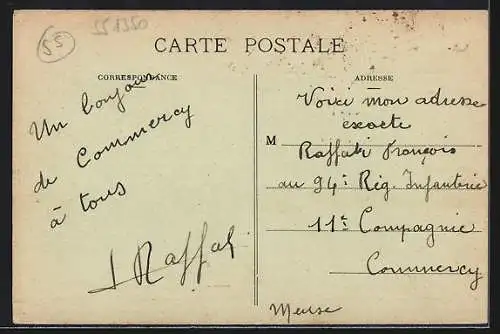 55
551320
CARTE POSTALE
CORRESPONDANCE
Un bonjour
de Commercy
à tous
ADRESSE
Voici mon adresse
exacte
M Raffali François
au 94e Rég. Infanterie
11e Compagnie
Commercy
Meuse